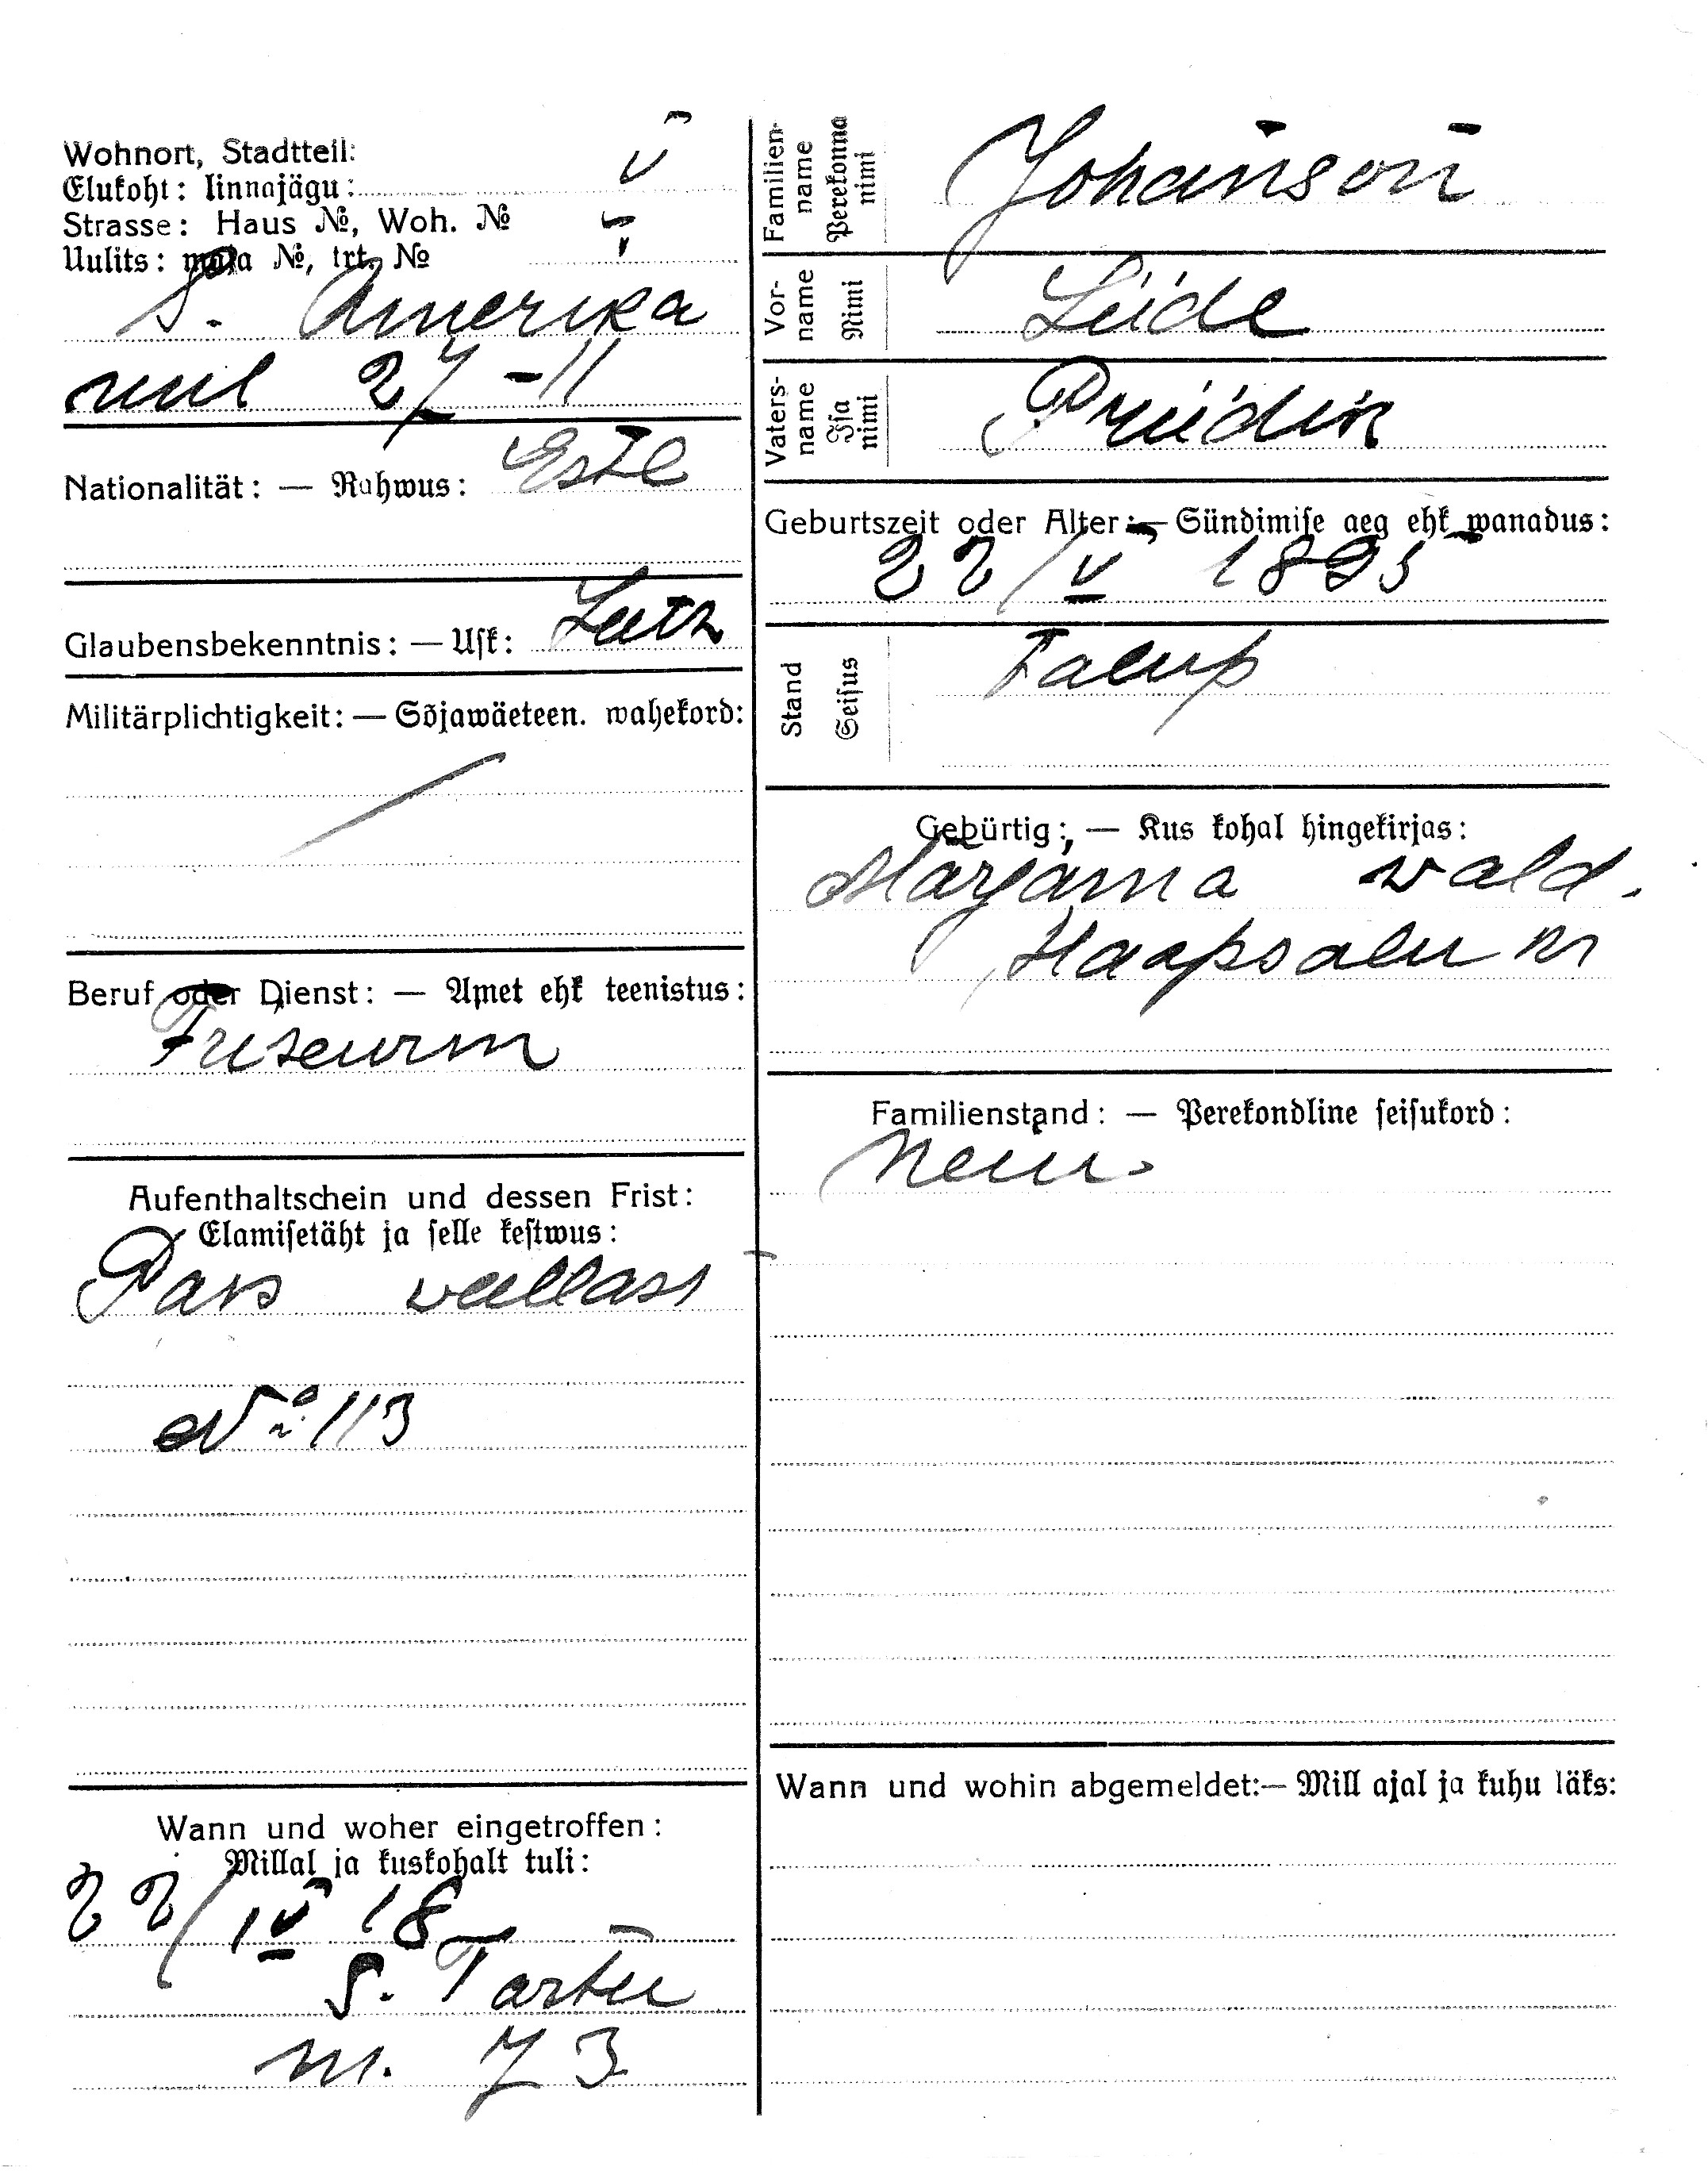 Wohnort, Stadtteil:
Elukoht: linnajägu: V
Strasse: Haus №, Woh. №
Uulits: maja №, trt. № V
S. Amerika
uul 27-11
Nationalität: — Rahwus: Estl
Glaubensbekenntnis: — Usk: Luth
Militärplichtigkeit: — Sõjawäeteen. wahekord:
Beruf oder Dienst: — Amet ehk teenistus:
Friseurin
Aufenthaltschein und dessen Frist:
Elamisetäht ja selle kestwus:
Pass wallast
№ 113
Wann und woher eingetroffen:
Millal ja kuskohalt tuli:
22/IV 18
S. Tartu
m. 73
Familien-name
Perekonna nimi
Johanson
Vor-name
Nimi
Liide
Vaters-name
Isa nimi
Priidik
Geburtszeit oder Alter: — Sündimise aeg ehk wanadus:
22/V 1895
Stand
Seisus
Talup
Gebürtig: — Kus kohal hingekirjas:
Marjama wald.
Haapsalu kr
Familienstand: — Perekondline seisukord:
Neiu
Wann und wohin abgemeldet:— Mill ajal ja kuhu läks: